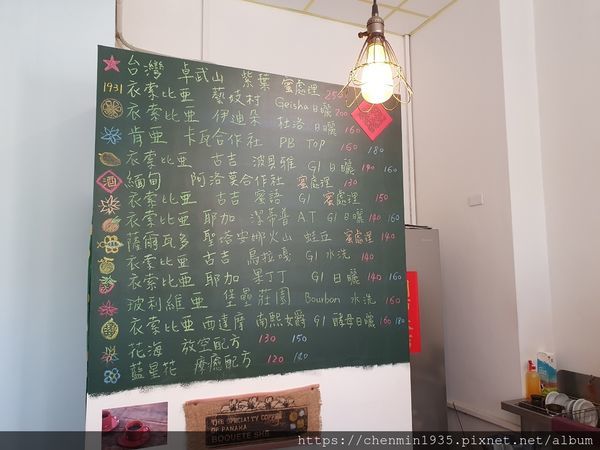 台灣 卓武山 紫葉 蜜處理 250
1931 衣索比亞 藝妓村 Geisha 日曬 200
衣索比亞 伊迪朵 杜洛 日曬 160
肯亞 卡瓦合作社 PB TOP 160 180
衣索比亞 古吉 波貝雅 G1 日曬 140 160
酒 緬甸 阿洛莫合作社 蜜處理 130
衣索比亞 古吉 蜜語 G1 蜜處理 150
衣索比亞 耶加 潔蒂普 A.T G1 日曬 140 160
薩爾瓦多 聖塔安娜火山 蛙豆 蜜處理 140
衣索比亞 古吉 烏拉嘎 G1 水洗 140
衣索比亞 耶加 果丁丁 G1 日曬 140 160
玻利維亞 堡壘莊園 Bourbon 水洗 160
衣索比亞 西達摩 南熙女爵 G1 酵母日曬 160 180
花海 放空配方 130 150
藍星花 療癒配方 120 140
THE SPECIALTY COFFEE
OF PANAMA
BOQUETE SHB
https://chenmin1935.pixnet.net/album